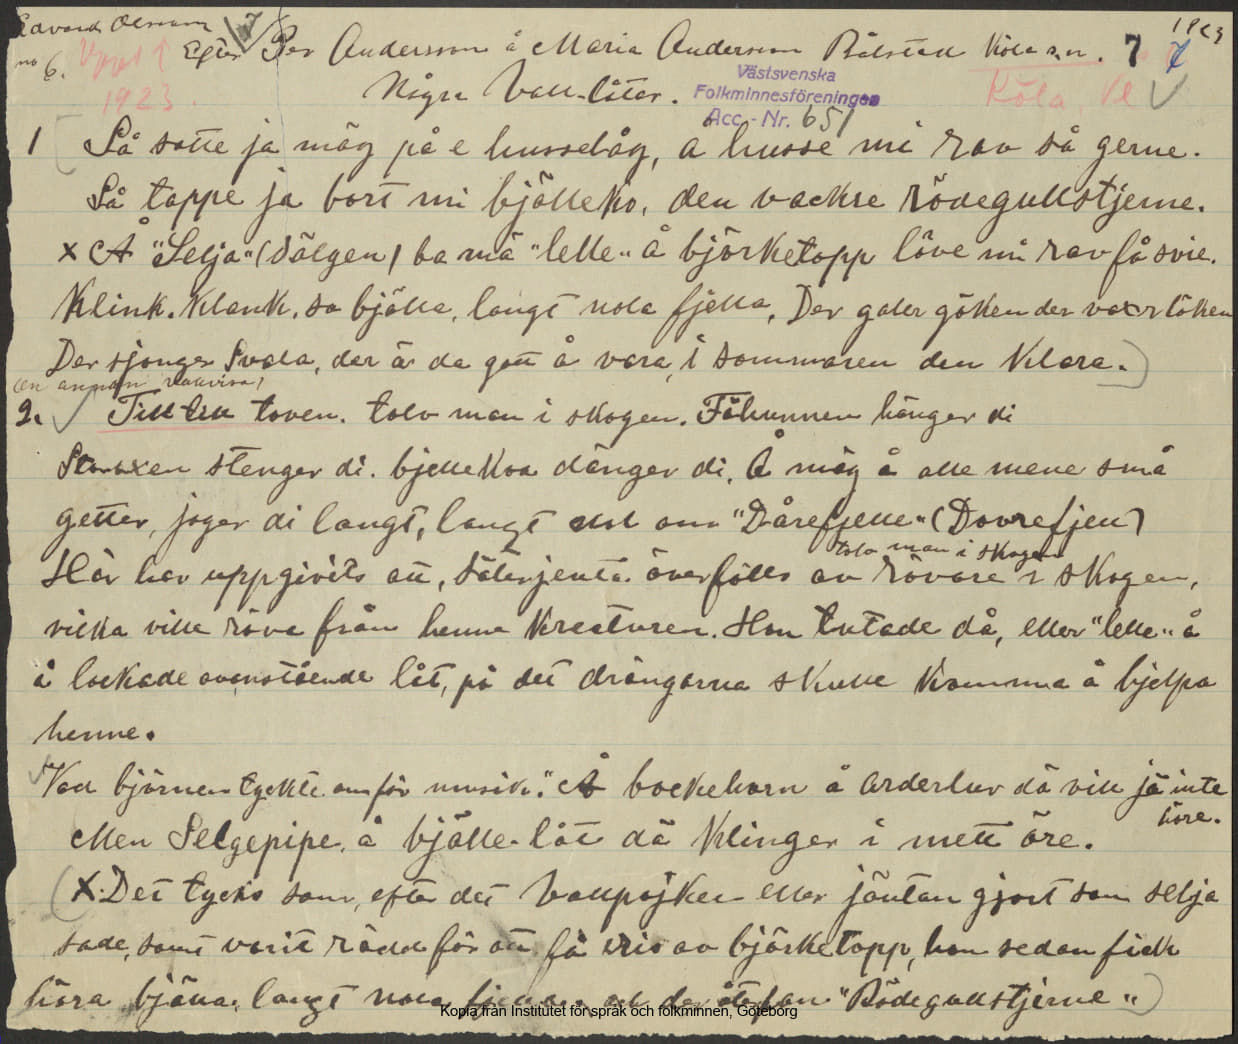 Edvard Olsson 1923
no 6. Uppt. Efter Per Andersson å Maria Andersson Bålstad Köla s:n. 7
1923. Några Vall-låtar. Västsvenska Köla, Vl
Folkminnesföreningen
Acc.-Nr. 651
1 Så satte ja mäg på e hussebåg, a husse mi rav så gerne.
Så tappe ja bort mi bjälleko, den vackre rödegullstjerne.
x Å "Selja" (Sälgen) ba mä "lelle" å björketopp löve mi rav få svie.
Klink. Klank. sa bjälla, langt nola fjella, Der galer göken der växer löken
Der sjonger Svala, der ä da gott å vara, i sommaren den klara.)
(en annan vallvisa)
2. Till till toven. tolv man i skogen. Fähunnen hänger di
Storoxen stenger di. bjellekoa dänger di. Å mäg å alle mene små
getter, jager di langt, langt nol om "Dårefjelle" (Dovrefjell)
tolv man i skogen
Här har uppgivits att, säterjenta överfölls av rövare i skogen,
vilka ville röva från henne kreaturen. Hon tutade då, eller "lelle" å
å lockade ovanstående låt, på det drängarna skulle komma å hjelpa
henne.
Vad björnen tyckte om för musik. "Å bockehorn å arderlur dä vill jä inte
höra.
Men Selgepipe å bjälle-låt dä klinger i mett öre.
(X. Det tycks som, efter det vallpojken eller jäntan gjort som selja
sade, samt varit rädd för att få svie av björketopp, han sedan fick
höra bjälla, langt nola fjella "Rödegullstjerne")
Kopia från Institutet för språk och folkminnen, Göteborg